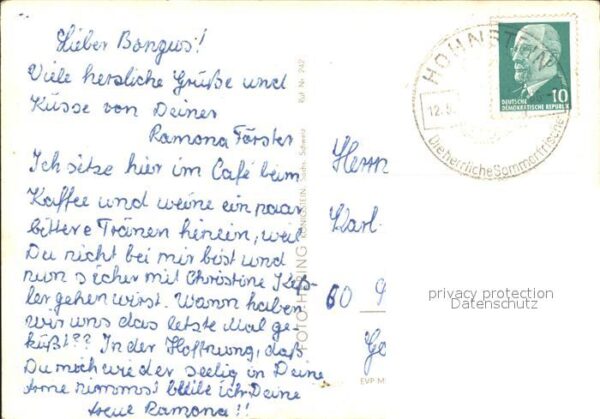 Lieber Bongus!
Viele herzliche Grüße und
Küsse von Deiner
Ramona Förster
Ich sitze hier im Café beim
Kaffee und weine ein paar
bittere Tränen herein, weil
Du nicht bei mir bist und
nun sicher mit Christine Keß-
ler gehen wirst. Wann haben
wir uns das letzte Mal ge-
küßt?? In der Hoffnung, daß
Du mich wieder seelig in Deine
Arme nimmst bleibe ich Deine
treue Ramona!!
Ruf Nr. 242
FOTO-HÄRING, KÖNIGSTEIN, Sächs. Schweiz
EVP M
Herrn
Karl
60 9
Ge
HOHNSTEIN
12.5.
Die herrliche Sommerfrische
DEUTSCHE
DEMOKRATISCHE REPUBLIK
10
privacy protection
Datenschutz